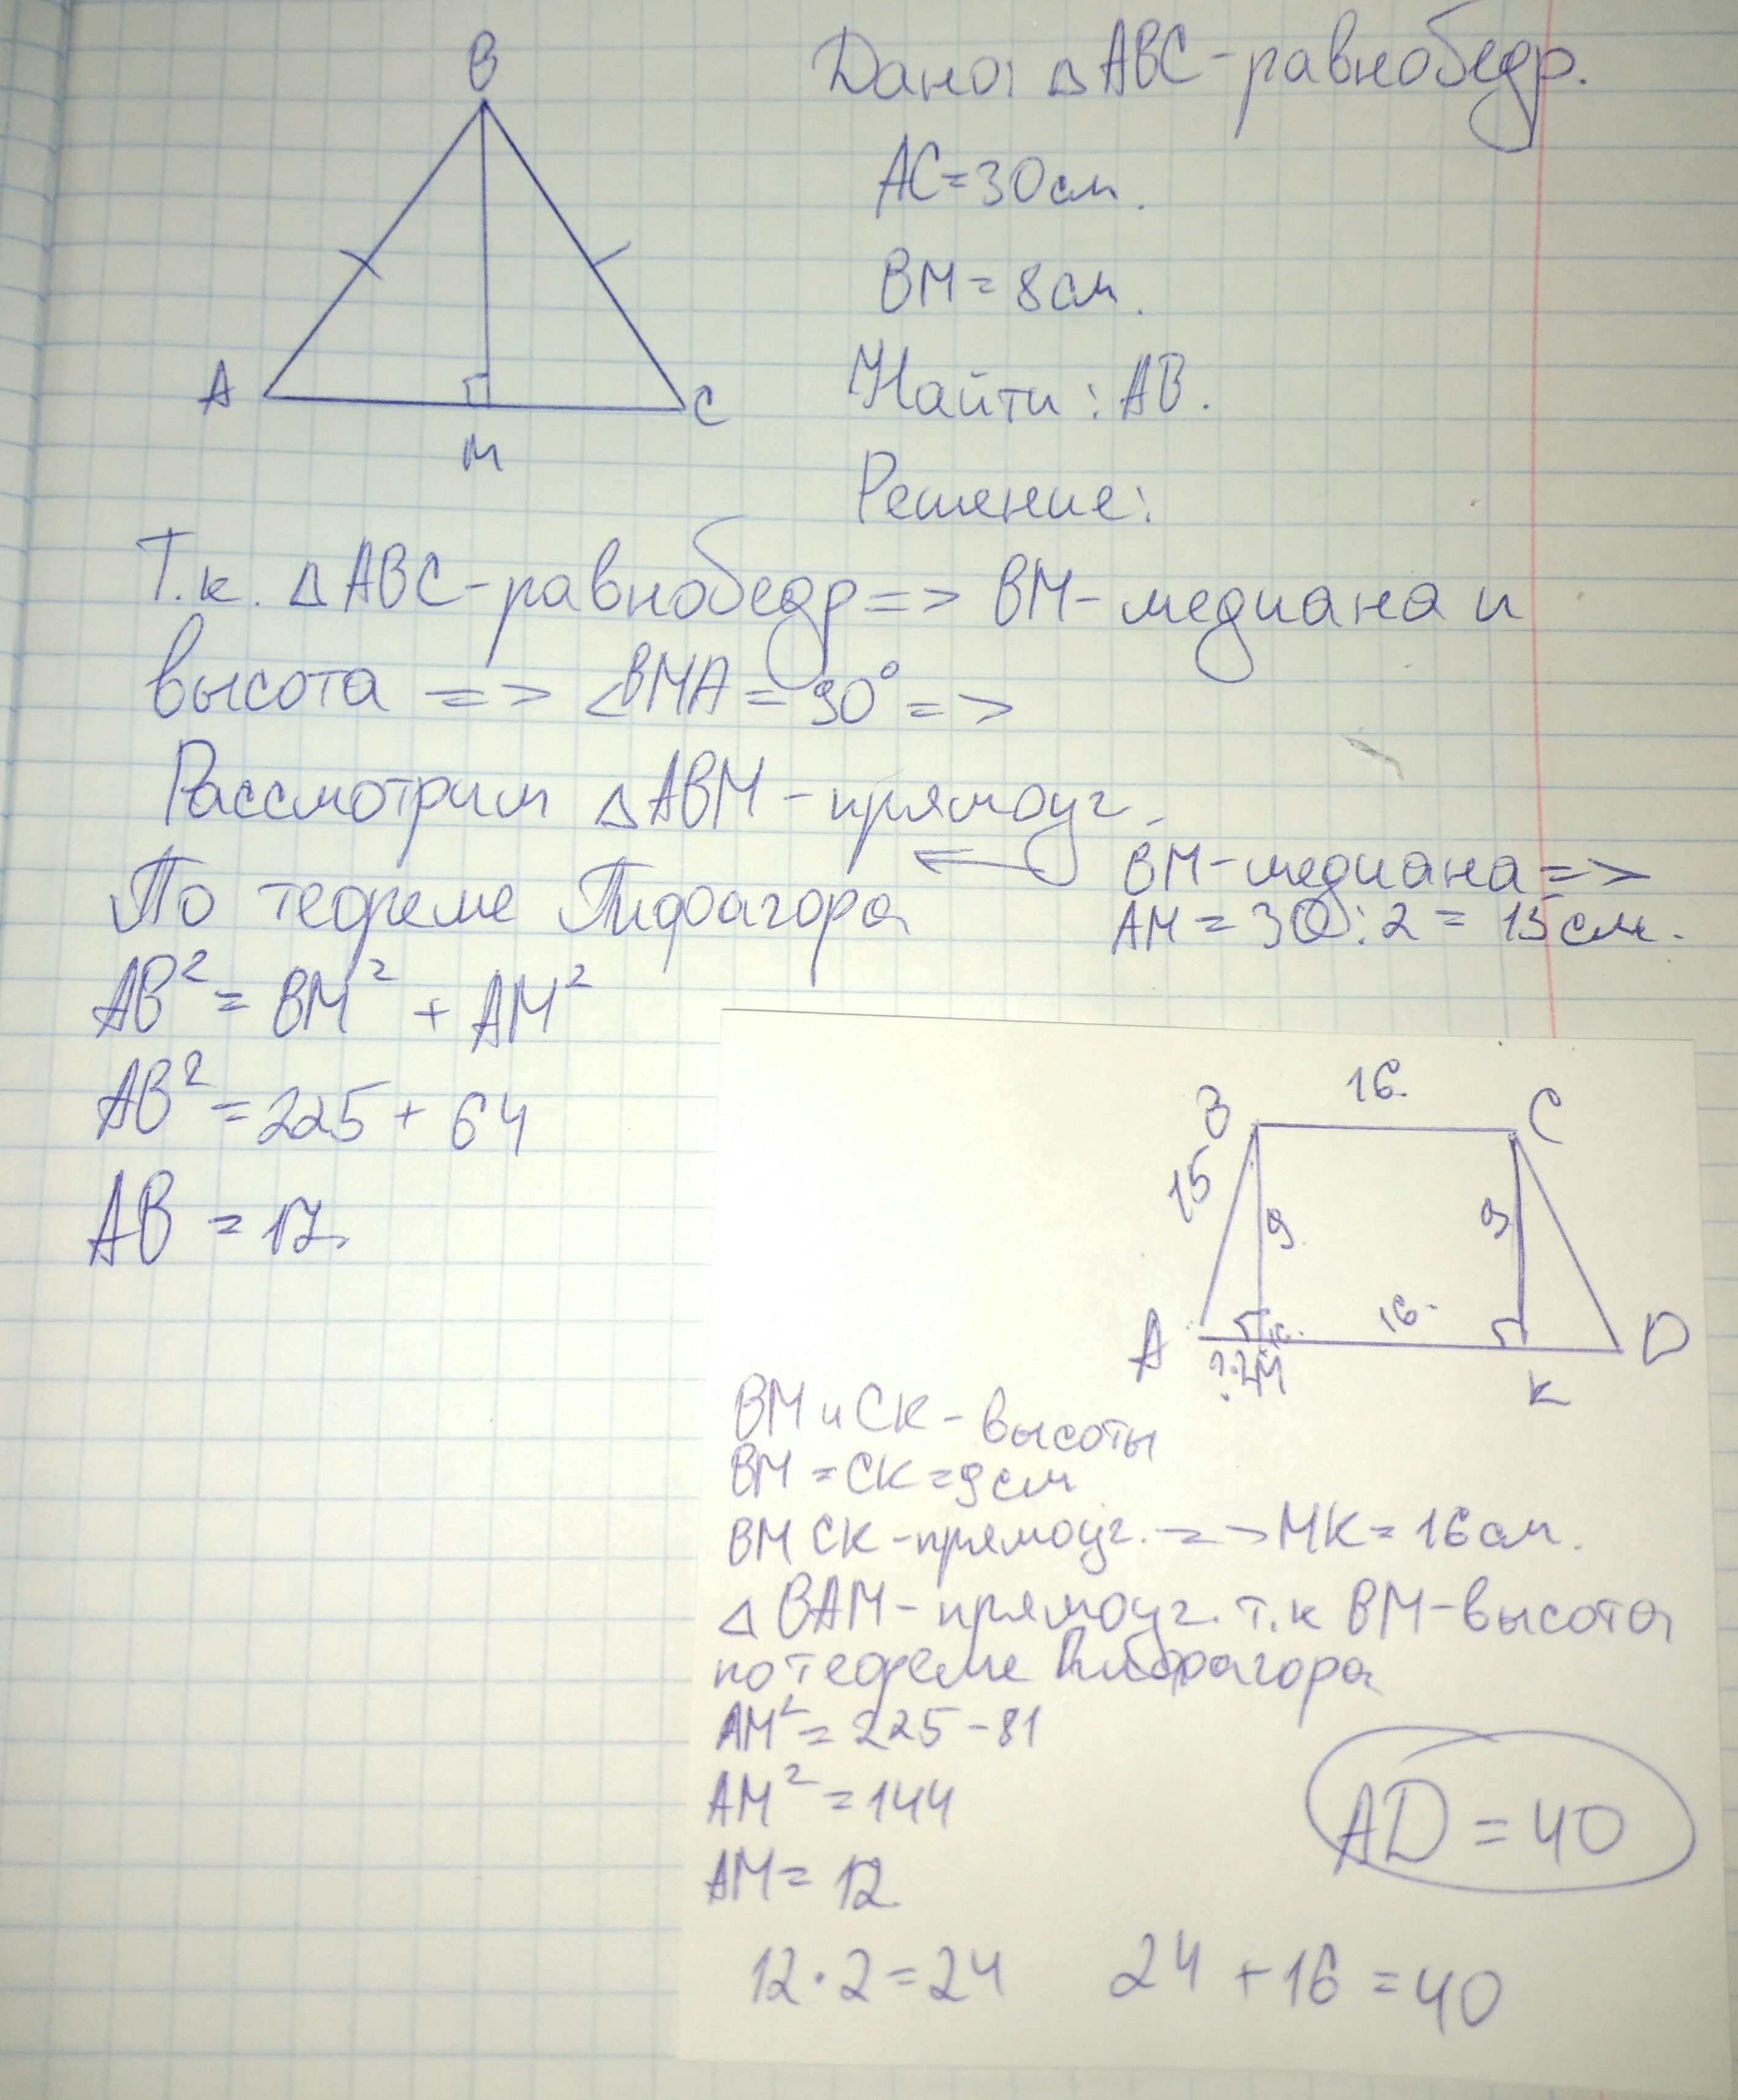 B
Дано: △ABC-равнобедр.
AC=30см.
BM=8см.
A
C
M
Найти: AB.
Решение:
Т.к. △ABC-равнобедр => BM-медиана и
высота => ∠BMA=90° =>
Рассмотрим △ABM-прямоуг.
По теореме Пифагора
BM-медиана =>
AM=30:2=15см.
AB²=BM²+AM²
AB²=225+64
AB=17.
16.
B
C
15
9
9
A
16.
D
M
K
BM и CK-высоты
BM=CK=9см
BMCK-прямоуг. => MK=16см.
△BAM-прямоуг. т.к BM-высота
по теореме Пифрагора
AM²=225-81
AM²=144
AM=12
AD=40
12·2=24
24+16=40